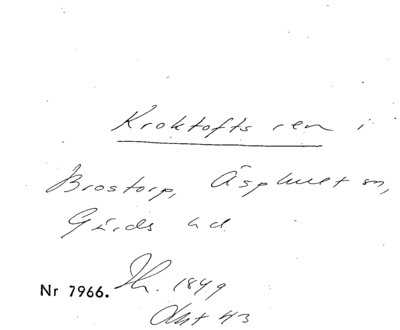 Kroktofts ren i
Brostorp, Äsphult sn,
Gärds hd
Th. 1849
Nr 7966.
Akt 43